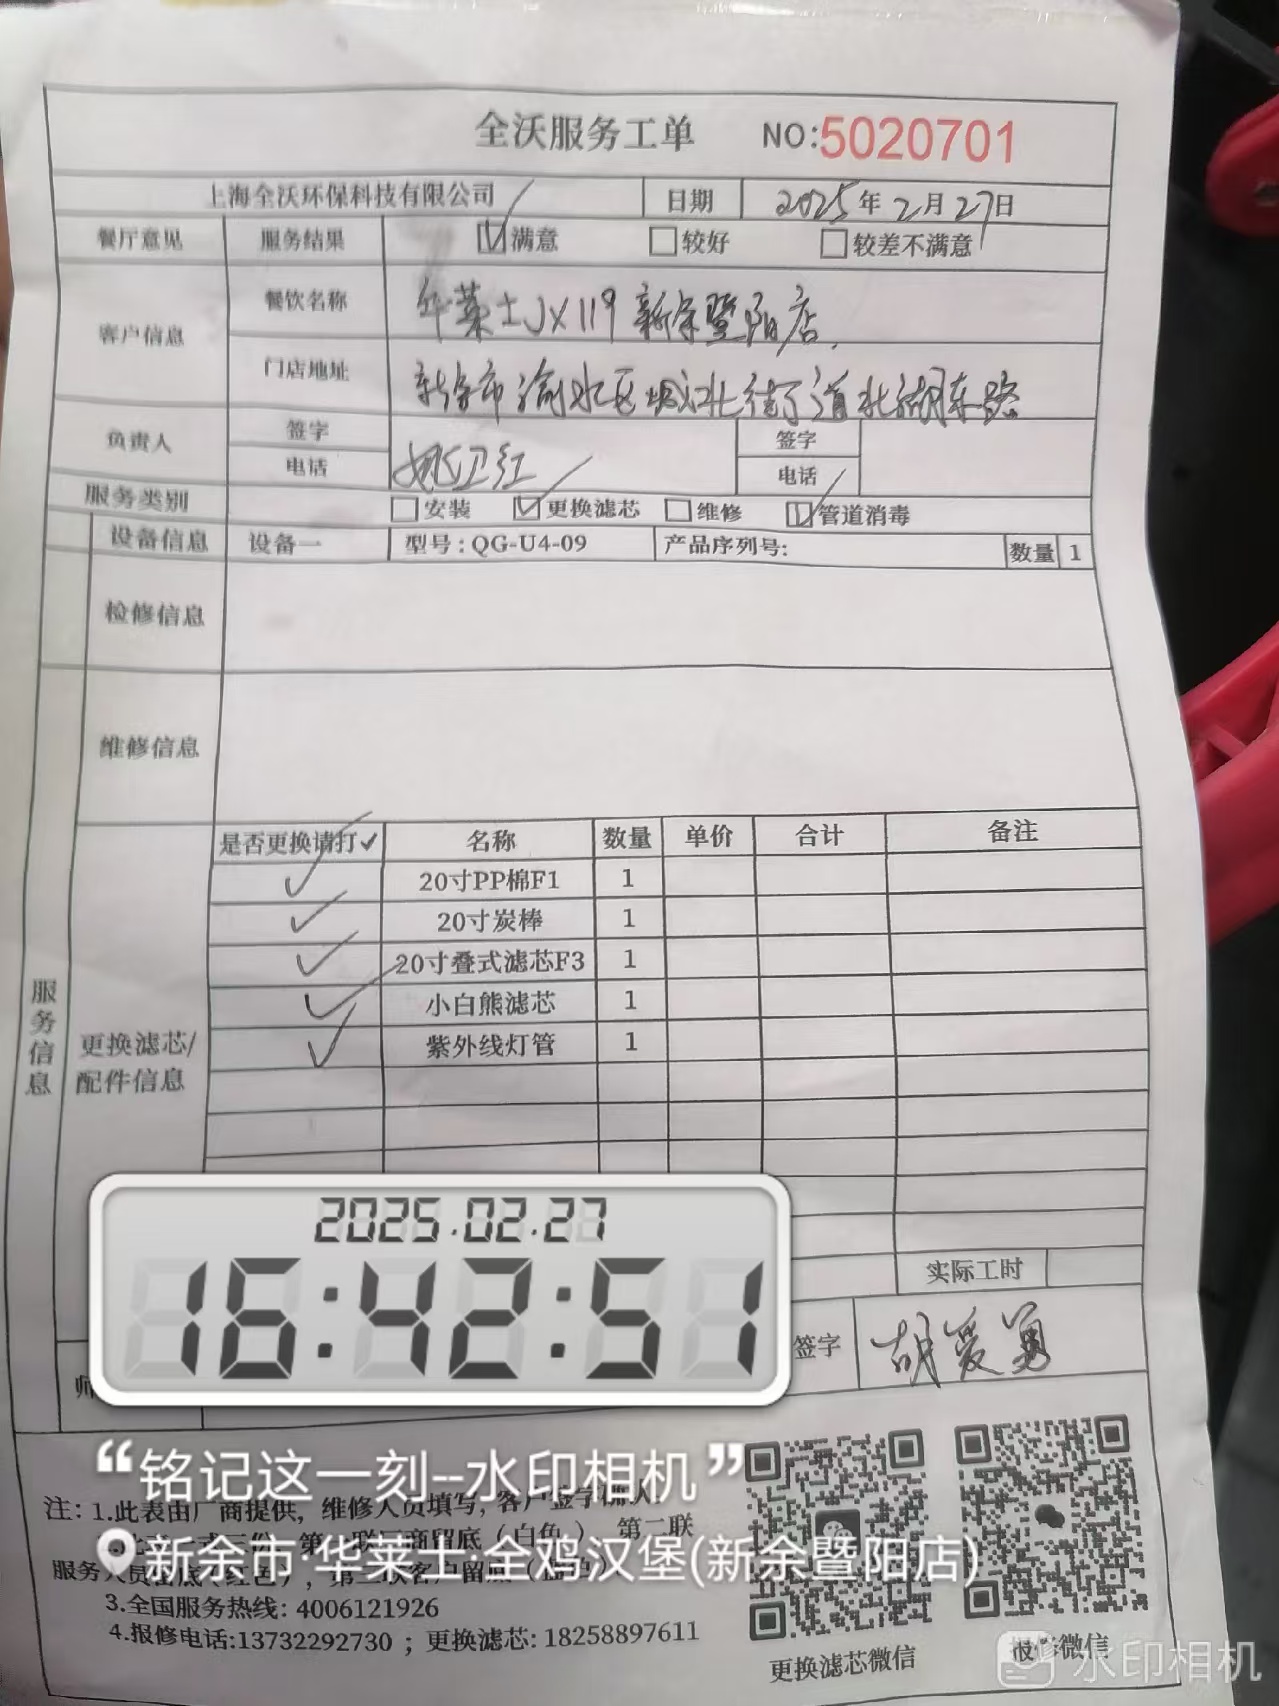 全沃服务工单 NO:5020701
上海全沃环保科技有限公司 日期 2025年2月27日
餐厅意见 服务结果 满意 较好 较差不满意
客户信息 餐饮名称 华莱士JX119新余暨阳店.
门店地址 新余市渝水区城北街道北湖东路
负责人 签字 签字
电话 姚卫红 电话
服务类别 安装 更换滤芯 维修 管道消毒
设备信息 设备一 型号:QG-U4-09 产品序列号: 数量 1
检修信息
维修信息
是否更换请打✓ 名称 数量 单价 合计 备注
✓ 20寸PP棉F1 1
✓ 20寸炭棒 1
✓ 20寸叠式滤芯F3 1
✓ 小白熊滤芯 1
✓ 紫外线灯管 1
服务信息
更换滤芯/
配件信息
2025.02.27
16:42:51
实际工时
师 签字 胡爱勇
“铭记这一刻--水印相机”
注: 1.此表由厂商提供, 维修人员填写, 客户签字确认.
第二联
新余市·华莱士·全鸡汉堡(新余暨阳店)
服务人员留底(红色), 第三联客户留底
3.全国服务热线: 4006121926
4.报修电话:13732292730 ; 更换滤芯: 18258897611
更换滤芯微信 报修微信
水印相机